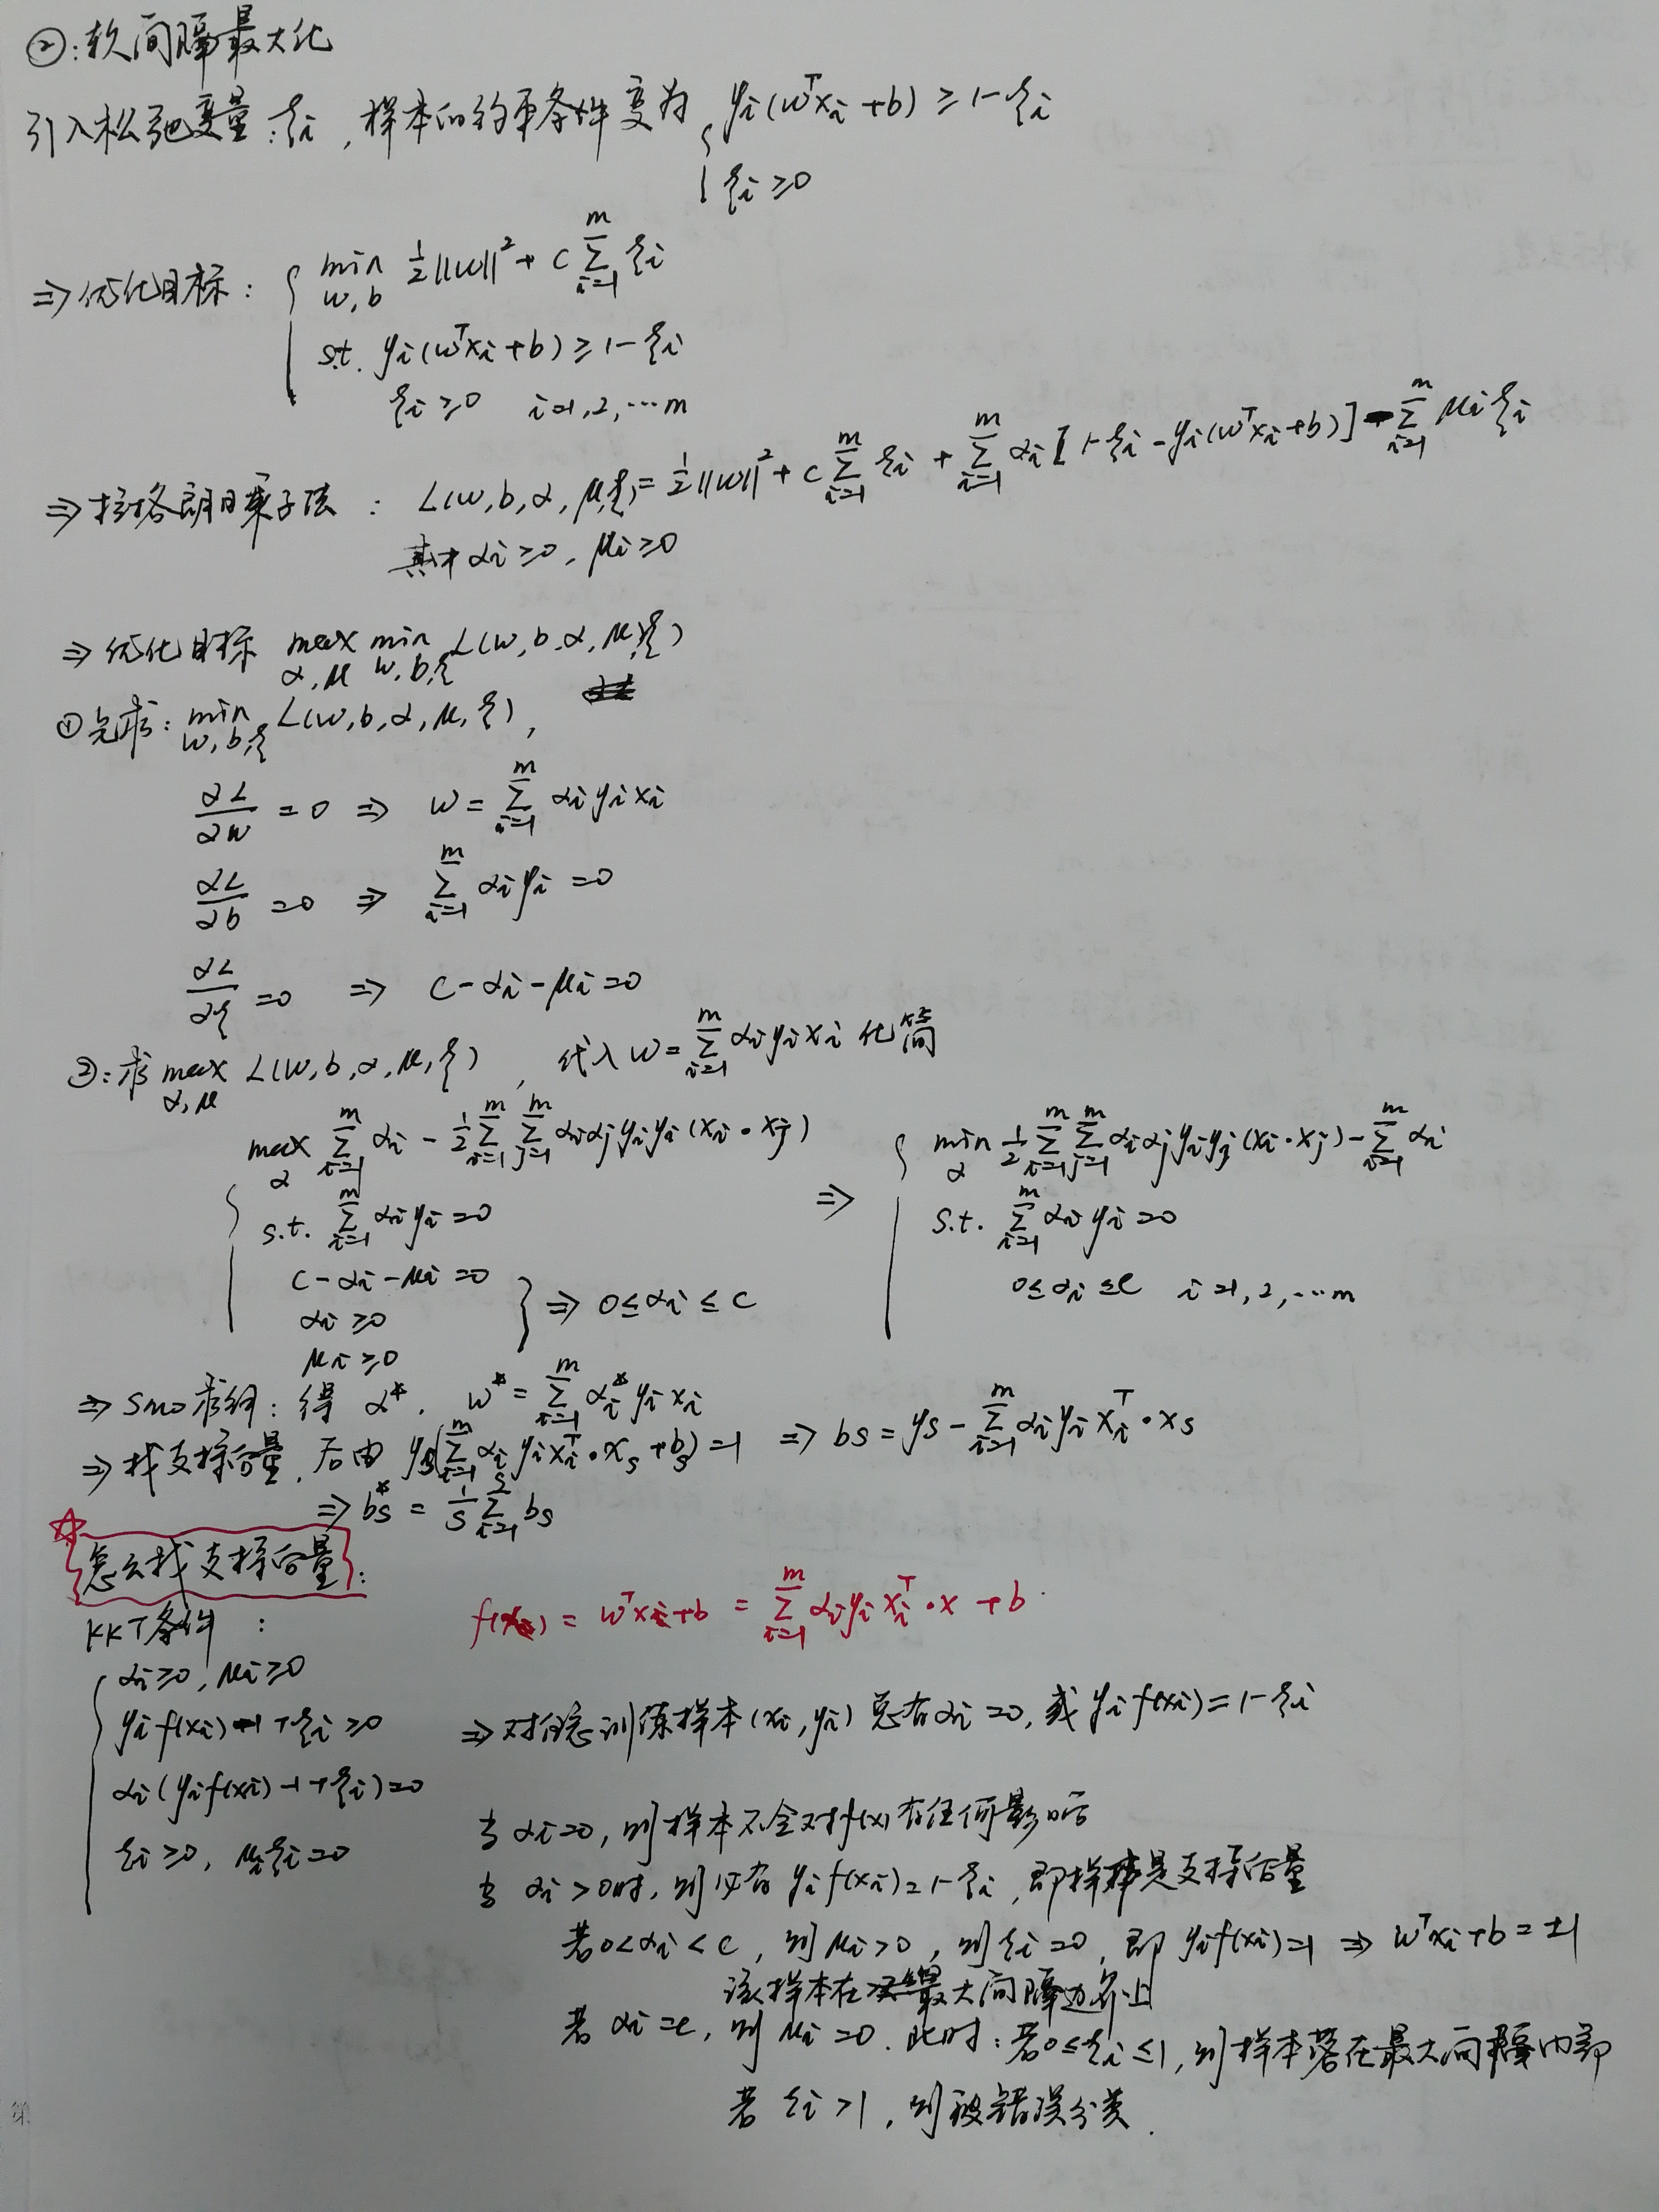 ②:软间隔最大化
引入松弛变量:ξi,样本的约束条件变为 { yi(wᵀxi+b) ≥ 1-ξi
ξi ≥0
⇒优化目标: { min w,b ½||w||² + C Σ_{i=1}^{m} ξi
s.t. yi(wᵀxi+b) ≥ 1-ξi
ξi ≥0 i=1,2,…m
⇒拉格朗日乘子法: L(w,b,α,μ,ξ)= ½||w||² + C Σ_{i=1}^{m} ξi + Σ_{i=1}^{m} αi[1-ξi-yi(wᵀxi+b)] - Σ_{i=1}^{m} μiξi
其中 αi≥0, μi≥0
⇒优化目标 max α,μ min w,b,ξ L(w,b,α,μ,ξ)
①先求: min w,b,ξ L(w,b,α,μ,ξ),
∂L/∂w =0 ⇒ w= Σ_{i=1}^{m} αiyixi
∂L/∂b =0 ⇒ Σ_{i=1}^{m} αiyi =0
∂L/∂ξ =0 ⇒ C-αi-μi=0
②:求 max α,μ L(w,b,α,μ,ξ), 代入 w= Σ_{i=1}^{m} αiyixi 化简
max α Σ_{i=1}^{m} αi - ½ Σ_{i=1}^{m} Σ_{j=1}^{m} αiαjyiyi(xi·xj) ⇒ { min α ½ Σ_{i=1}^{m} Σ_{j=1}^{m} αiαjyiyj(xi·xj) - Σ_{i=1}^{m} αi
s.t. Σ_{i=1}^{m} αiyi=0 s.t. Σ_{i=1}^{m} αiyi=0
C-αi-μi=0 0≤αi≤C i=1,2,…m
αi≥0 } ⇒ 0≤αi≤C
μi≥0
⇒ SMO求解: 得 α*, w*= Σ_{i=1}^{m} αi*yixi
⇒ 找支撑向量,后由 ys(Σ_{i=1}^{m} αiyixiᵀ·xs+bs)=1 ⇒ bs=ys- Σ_{i=1}^{m} αiyixiᵀ·xs
⇒ bs* = 1/S Σ_{i=1}^{S} bs
☆ 怎么找支撑向量:
KKT条件:
f(x)= wᵀx+b = Σ_{i=1}^{m} αiyixiᵀ·x+b
{ αi≥0, μi≥0
yif(xi)-1+ξi≥0
αi(yif(xi)-1+ξi)=0
ξi≥0, μiξi=0
⇒ 对任意训练样本(xi,yi)总有αi=0,或 yif(xi)=1-ξi
当 αi=0,则样本不会对f(x)有任何影响
当 αi>0时,则必有 yif(xi)=1-ξi,即样本是支撑向量
若0<αi<C,则μi>0,则ξi=0,即 yif(xi)=1 ⇒ wᵀxi+b=±1
该样本在最大间隔边界上
若 αi=C,则 μi=0.此时:若0≤ξi≤1,则样本落在最大间隔内部
若 ξi>1,则被错误分类.
第